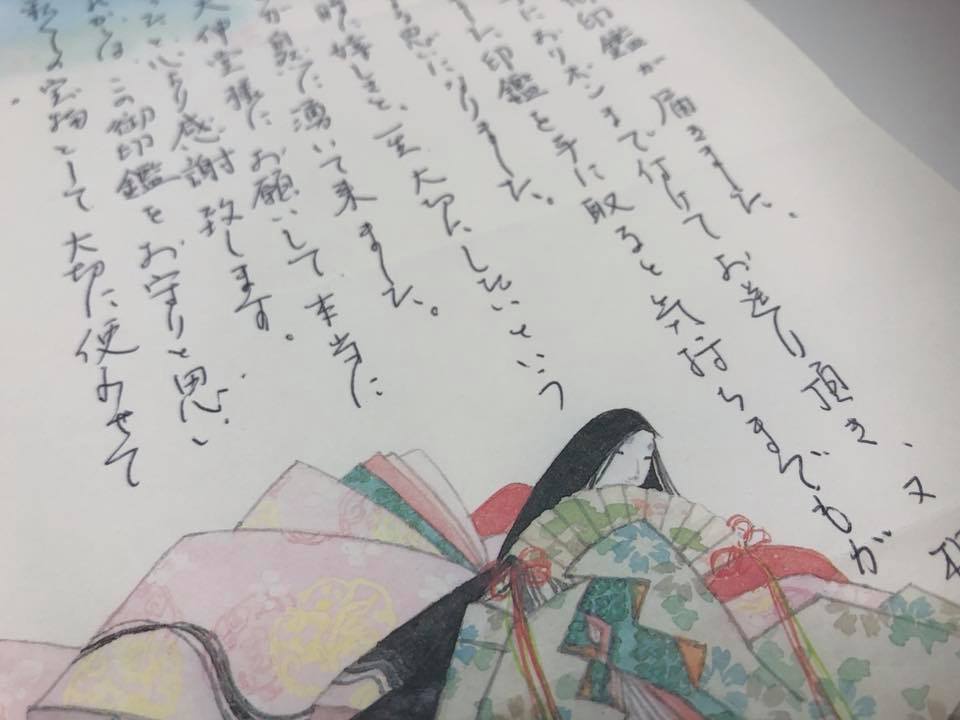 印鑑が届きました。
におリボンまで付けてお送り頂き、又
した。印鑑を手に取ると気持ちまでもが
る思いになりました。
嬉しさと、一生大切にしたいという
湧いて来ました。
堂様にお願いして、本当に
ったと心より感謝致します。
からは、この御印鑑をお守りと思い
宝物として大切に使わせて